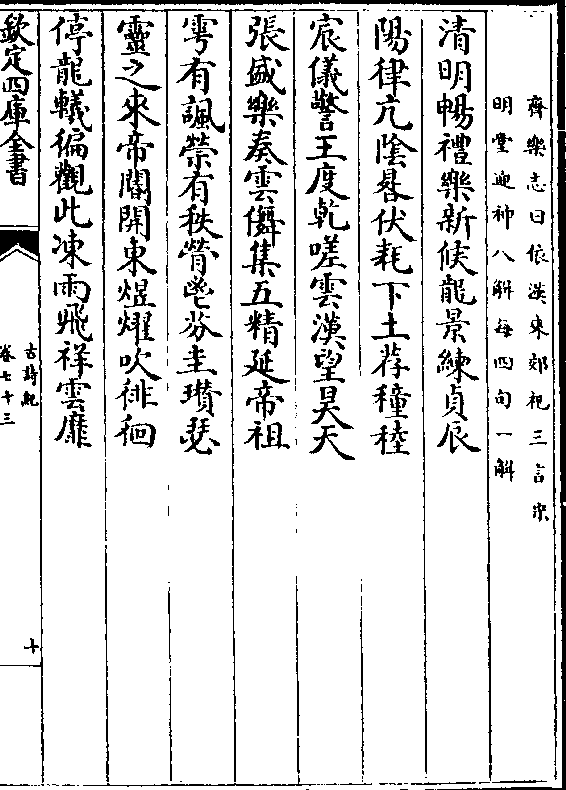 齊樂志曰依漢來郊祀三言宋
明堂迎神八解每四句一解
清明暢禮樂新候龍景練貞辰
陽律亢陰晷伏耗下土荐穜稑
宸儀警王度乾嗟雲漢望昊天
張盛樂奏雲儛集五精延帝祖
雩有諷禜有秩膋鬯芬圭瓚瑟
靈之來帝閽開車煜燿吹徘徊
停龍轙徧觀此凍雨飛祥雲靡
欽定四庫全書
古詩紀
卷七十三
十